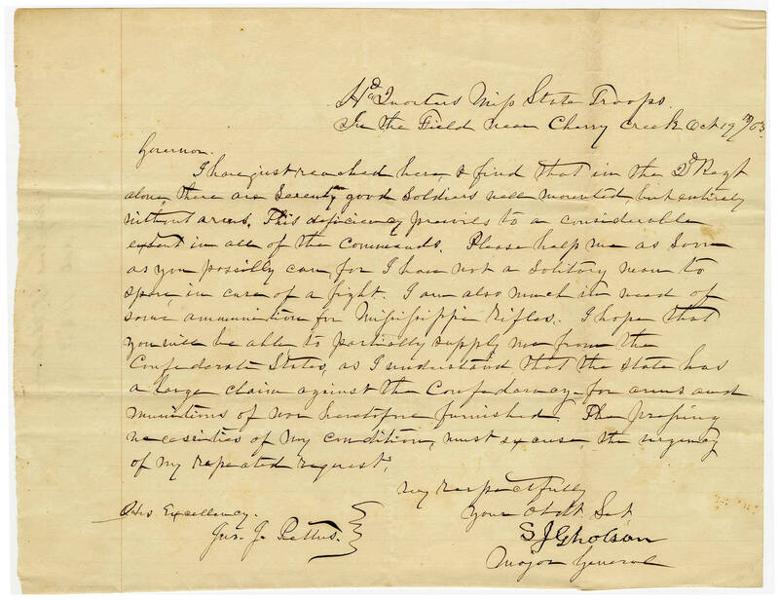 Hd Quarters Miss State Troops
In the Field near Cherry Creek Oct 19th /63
Governor.
I have just reached here & find that in the 2d Regt
alone, there are Seventy good Soldiers well mounted, but entirely
without arms. This deficiency prevails to a considerable
extent in all of the Commands. Please help me as soon
as you possibly can, for I have not a solitary man to
spare, in case of a fight. I am also much in need of
some ammunition for Mississippi Rifles. I hope that
you will be able to partially supply me from the
Confederate States, as I understand that the State has
a large claim against the Confederacy for arms and
munitions of war heretofore furnished. The pressing
necessities of my condition, must excuse, the urgency
of my repeated request.
Very respectfully
Your Obdt Svt
S J Gholson
Major General
His Excellency.
Jno. J. Pettus.